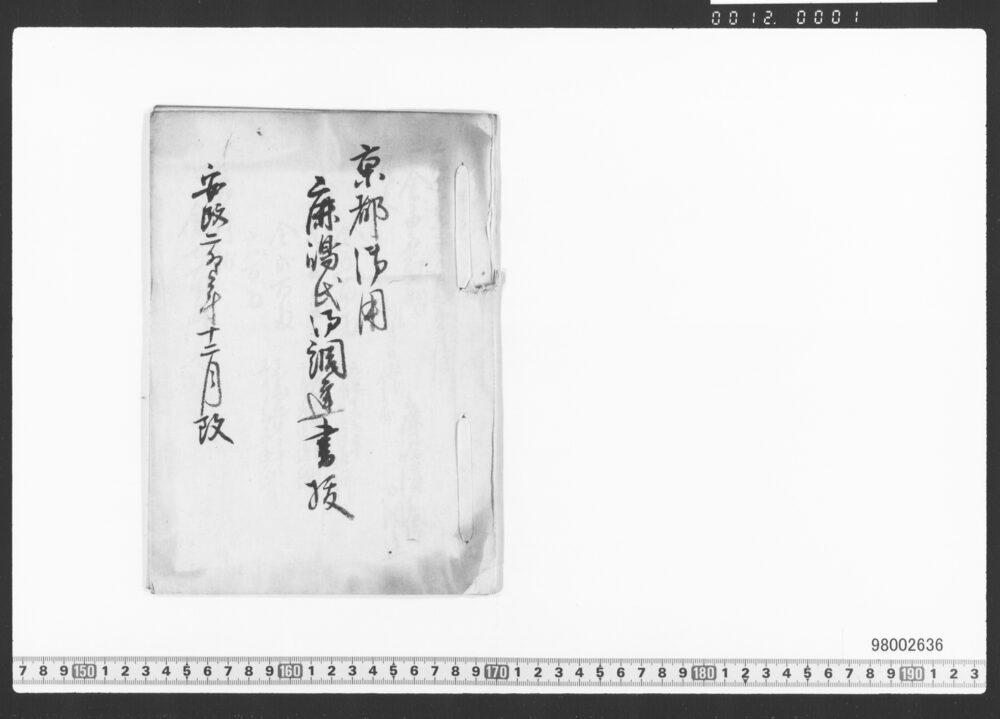 0012. 0001
京都御用
麻嶋氏御調達書抜
安政二卯年十二月改
98002636
7 8 9 150 1 2 3 4 5 6 7 8 9 160 1 2 3 4 5 6 7 8 9 170 1 2 3 4 5 6 7 8 9 180 1 2 3 4 5 6 7 8 9 190 1 2 3